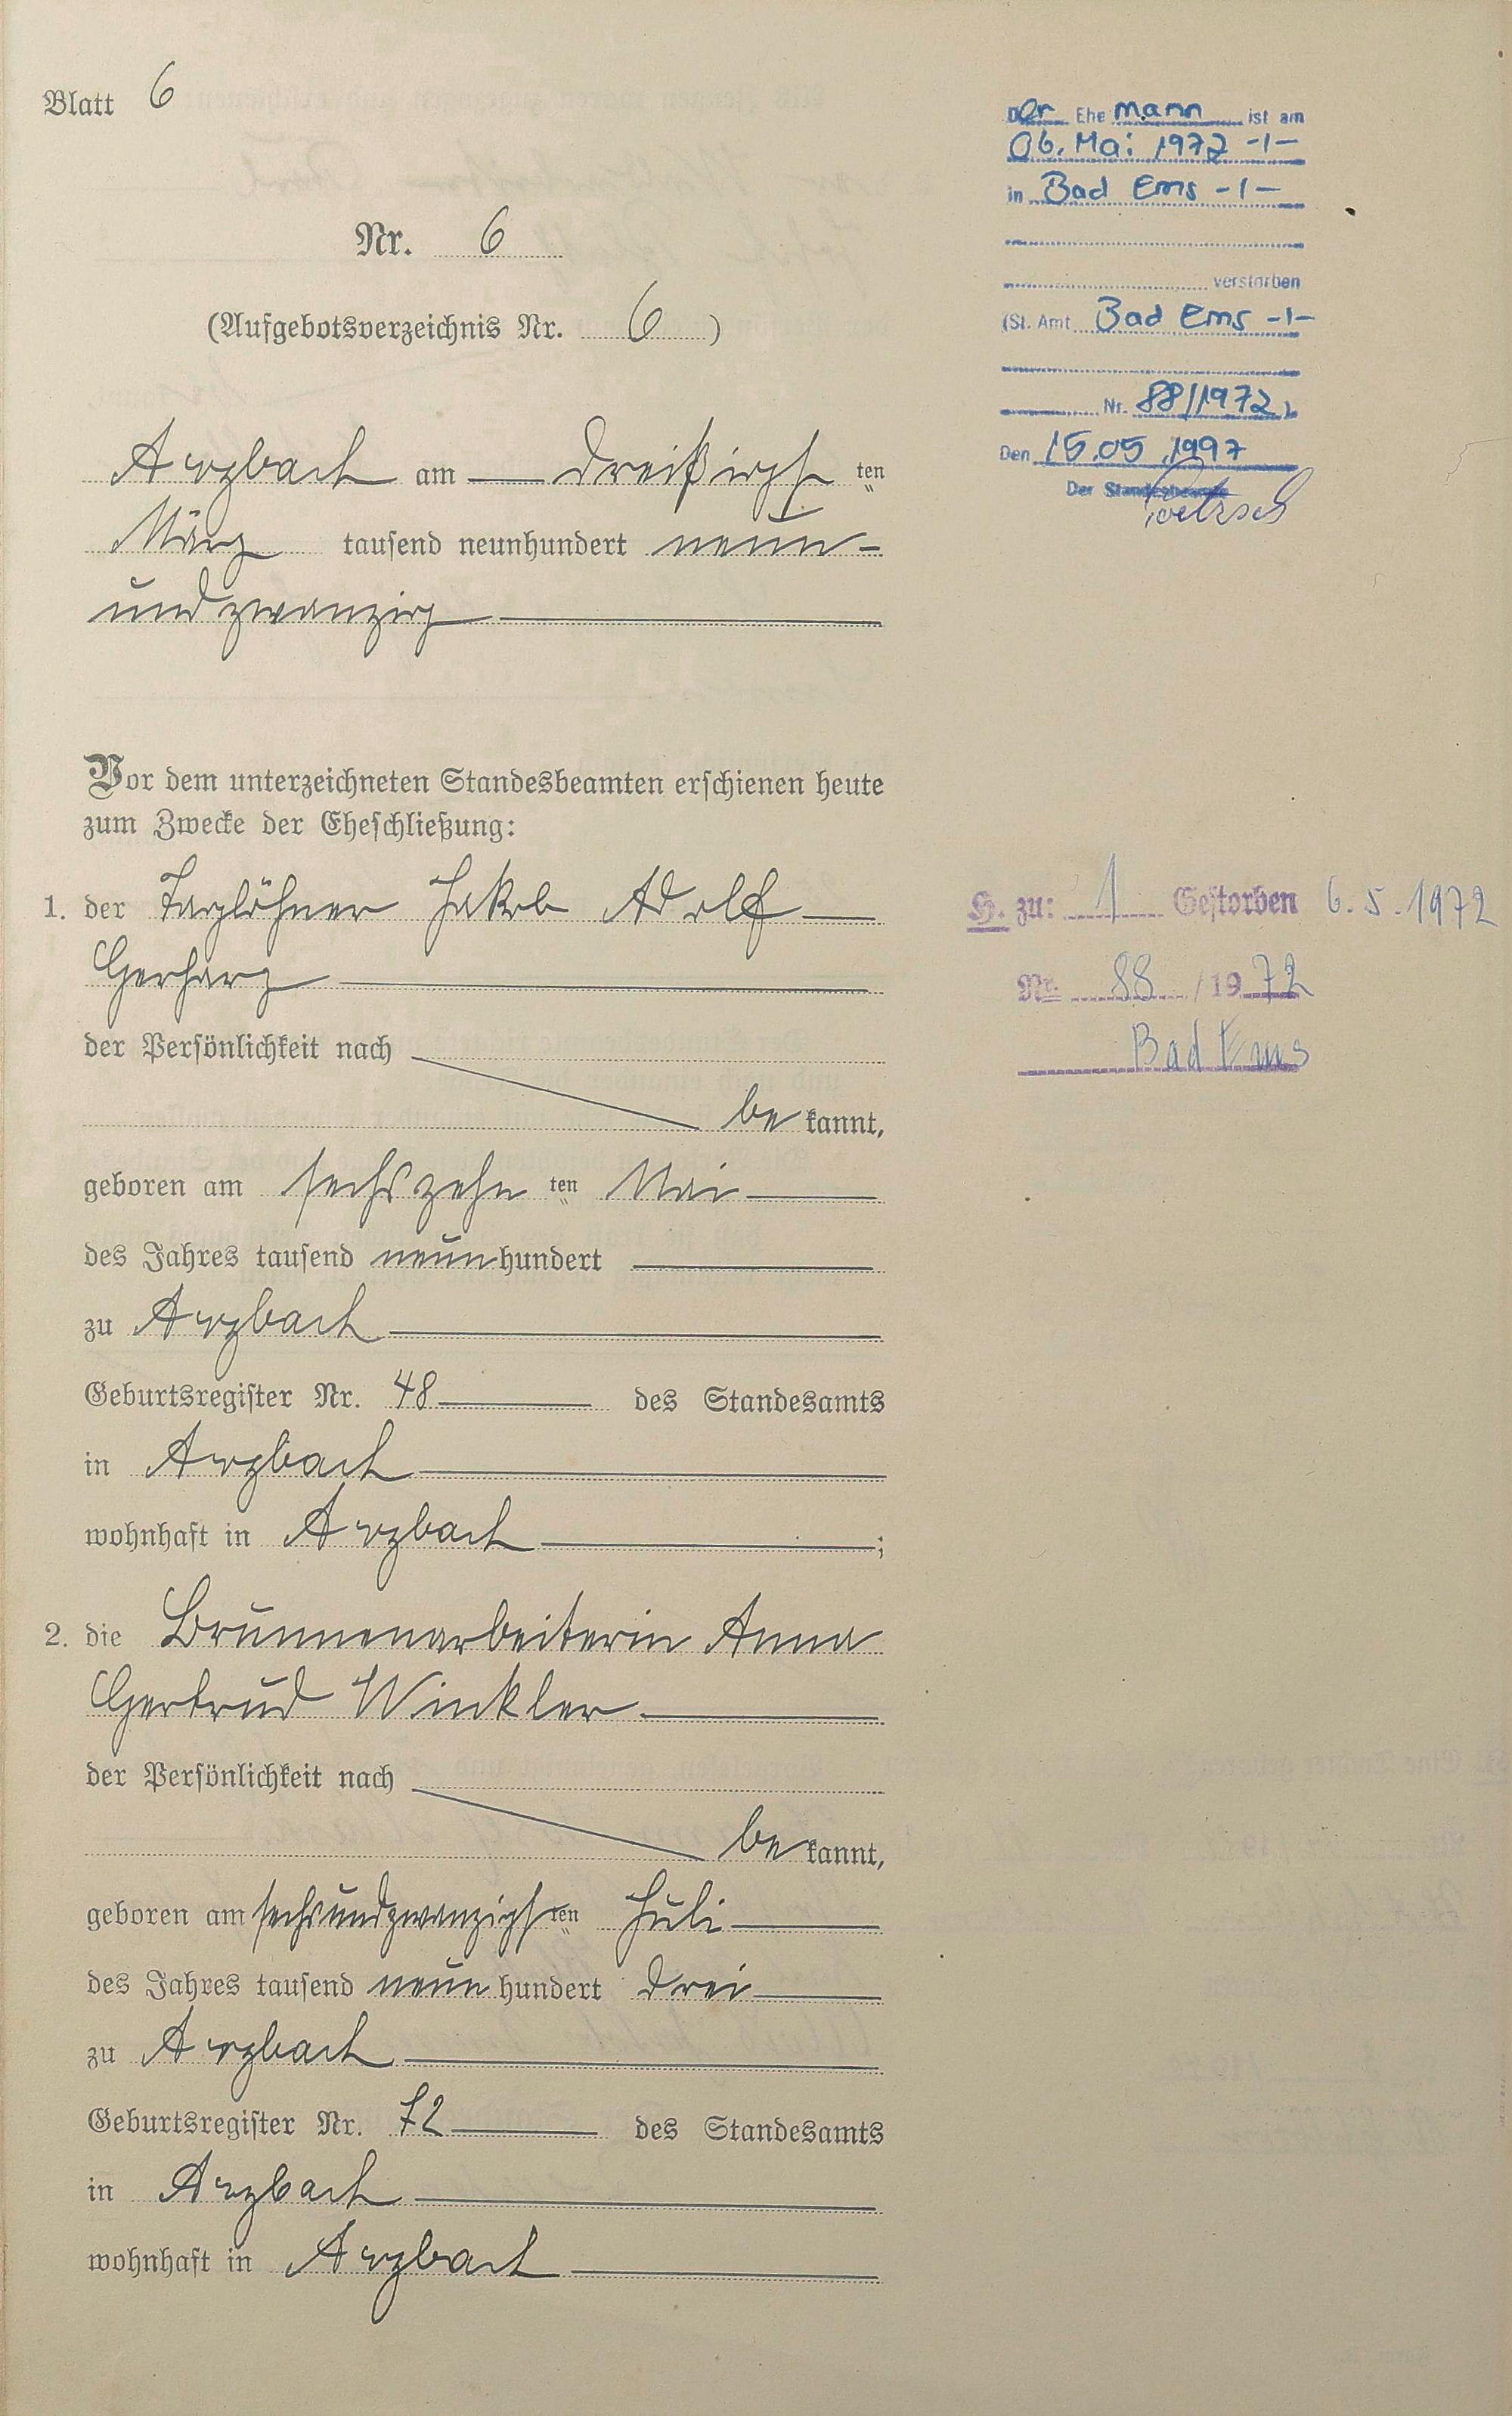 Blatt 6
Nr. 6
(Aufgebotsverzeichnis Nr. 6)
Arzbach am dreißigsten
März tausend neunhundert neun-
undzwanzig
Vor dem unterzeichneten Standesbeamten erschienen heute
zum Zwecke der Eheschließung:
1. der Taglöhner Jakob Adolf
Gerharz
der Persönlichkeit nach
bekannt,
geboren am sechszehnten Mai
des Jahres tausend neunhundert
zu Arzbach
Geburtsregister Nr. 48 des Standesamts
in Arzbach
wohnhaft in Arzbach;
2. die Brunnenarbeiterin Anna
Gertrud Winkler
der Persönlichkeit nach
bekannt,
geboren am sechsundzwanzigsten Juli
des Jahres tausend neunhundert drei
zu Arzbach
Geburtsregister Nr. 72 des Standesamts
in Arzbach
wohnhaft in Arzbach
Der Ehemann ist am
06. Mai 1972 -/-
in Bad Ems -/-
verstorben
(St. Amt Bad Ems -/-
Nr. 88/1972)
Den 15.05.1997
Der Standesbeamte
H. zu: 1 Gestorben 6.5.1972
Nr. 88/1972
Bad Ems